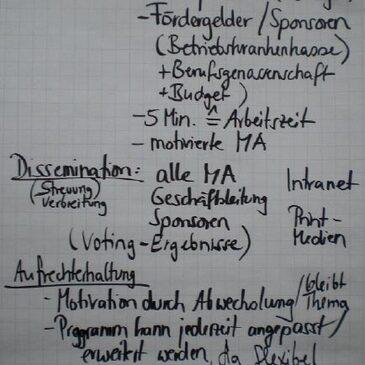 - Fördergelder / Sponsoren
(Betriebskrankenkasse)
+ Berufsgenossenschaft
+ Budget )
- 5 Min. ≙ Arbeitszeit
- motivierte MA
Dissemination: alle MA Intranet
(Streuung) Geschäftsleitung
Verbreitung Sponsoren Print-
(Voting-Ergebnisse) Medien
Aufrechterhaltung
- Motivation durch Abwechslung / bleibt Thema
- Programm kann jederzeit angepasst /
erweitert werden, da flexibel